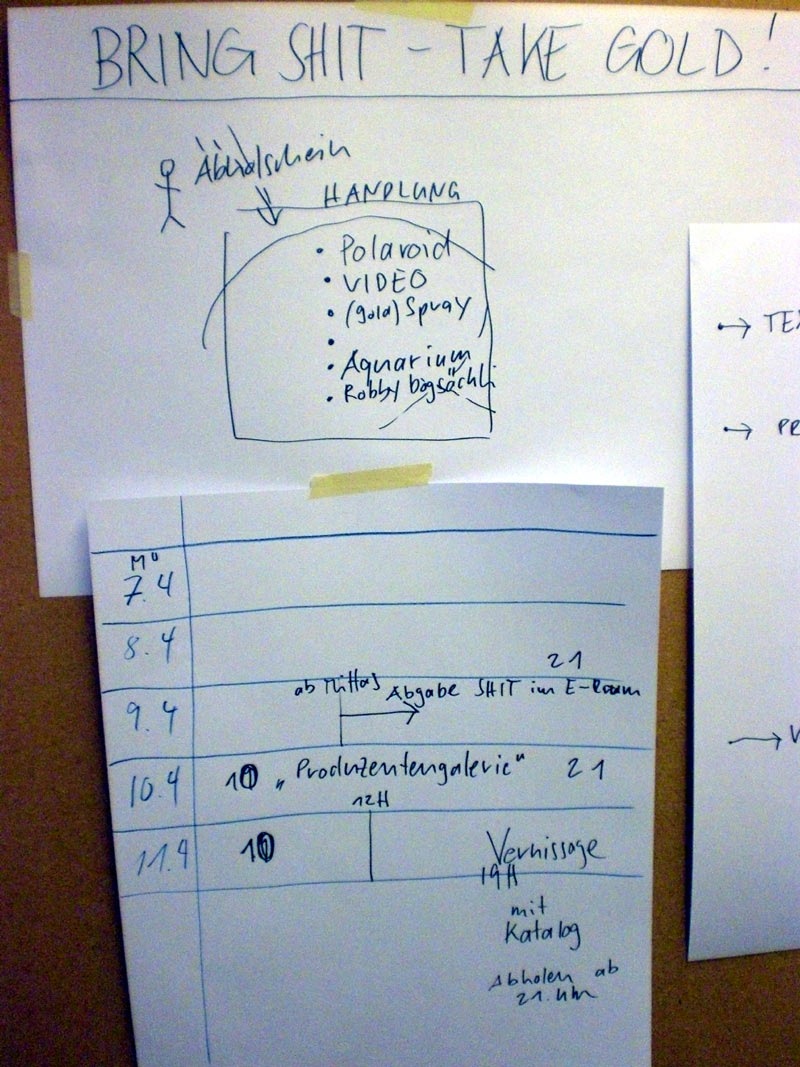 BRING SHIT - TAKE GOLD!
Abholschein
HANDLUNG
• Polaroid
• VIDEO
• (gold) Spray
•
• Aquarium
• Robby
Mo
7.4
8.4
21
ab Mittag Abgabe SHIT im E-Raum
9.4
10.4 10 „Produzentengalerie“ 21
12H
11.4 10 Vernissage
19H
mit
Katalog
Abholen ab
21. Uhr
→ TEX
→ PR
→ V